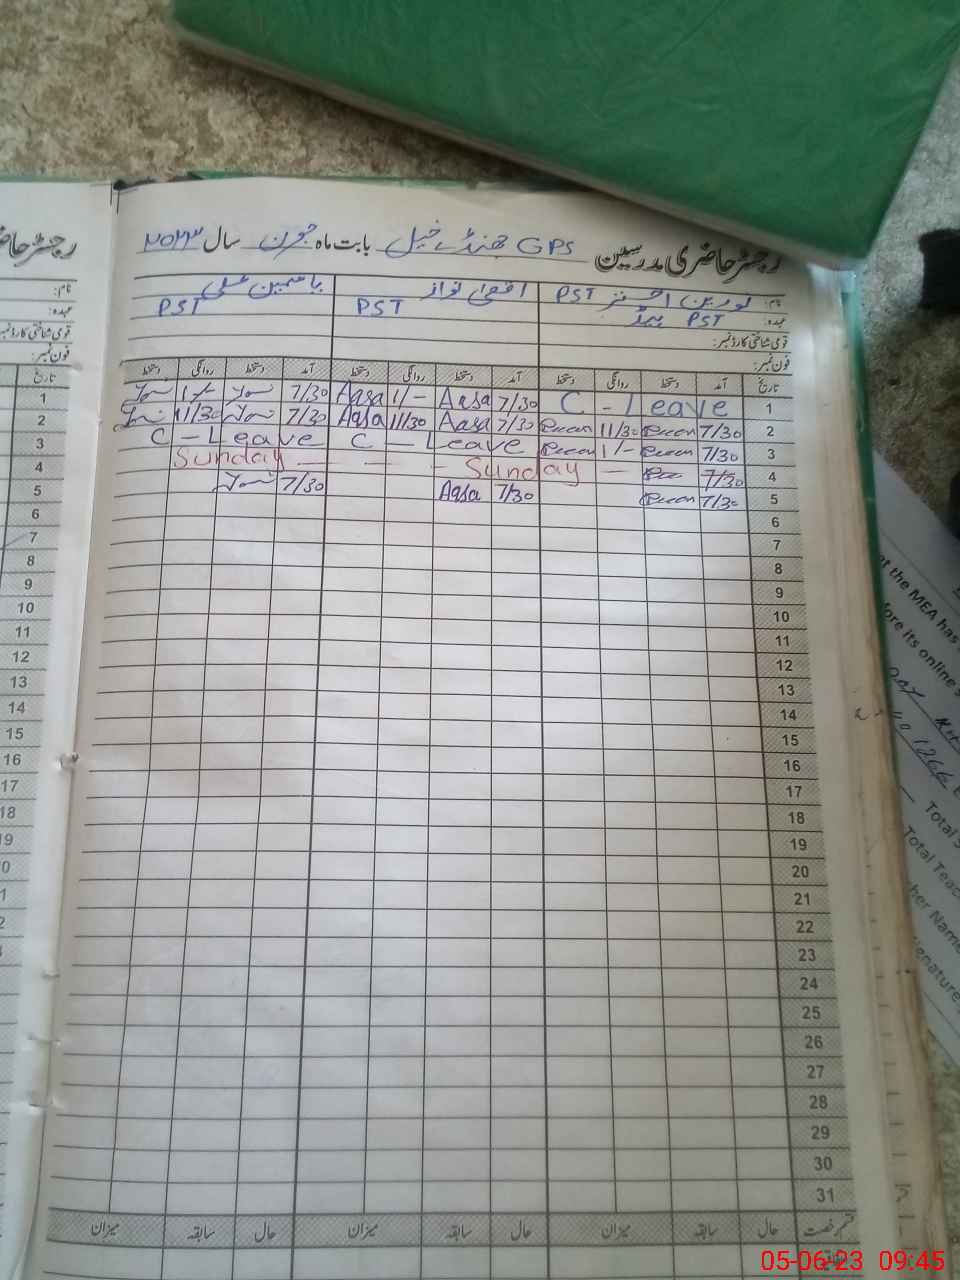 رجسٹر حاضری مدرسین GPS جھنڈے خیل بابت ماہ جون سال ۲۰۲۳
نام: نورین اختر PST اقصیٰ نواز یاسمین علی
عہدہ: PST ہیڈ PST PST
قومی شناختی کارڈ نمبر:
فون نمبر:
تاریخ آمد دستخط روانگی دستخط آمد دستخط روانگی دستخط آمد دستخط روانگی دستخط
1 C - Leave 7/30 Aqsa 1/- Aqsa 7/30 1/-
2 7/30 11/30 7/30 Aqsa 11/30 Aqsa 7/30 11/30
3 7/30 1/- C - Leave C - Leave
4 7/30 Sunday Sunday
5 7/30 7/30 Aqsa 7/30
6
7
8
9
10
11
12
13
14
15
16
17
18
19
20
21
22
23
24
25
26
27
28
29
30
31
قسم رخصت حال سابقہ میزان حال سابقہ میزان حال سابقہ میزان
اتفاقیہ
رجسٹر
نام:
عہدہ:
قومی شناختی کارڈ نمبر:
فون نمبر:
تاریخ
1
2
3
4
5
6
7
8
9
10
11
12
13
14
15
16
17
18
at the MEA has
fore its online
1266
Total
Total Teac
her Name
ignature
05-06-23 09:45